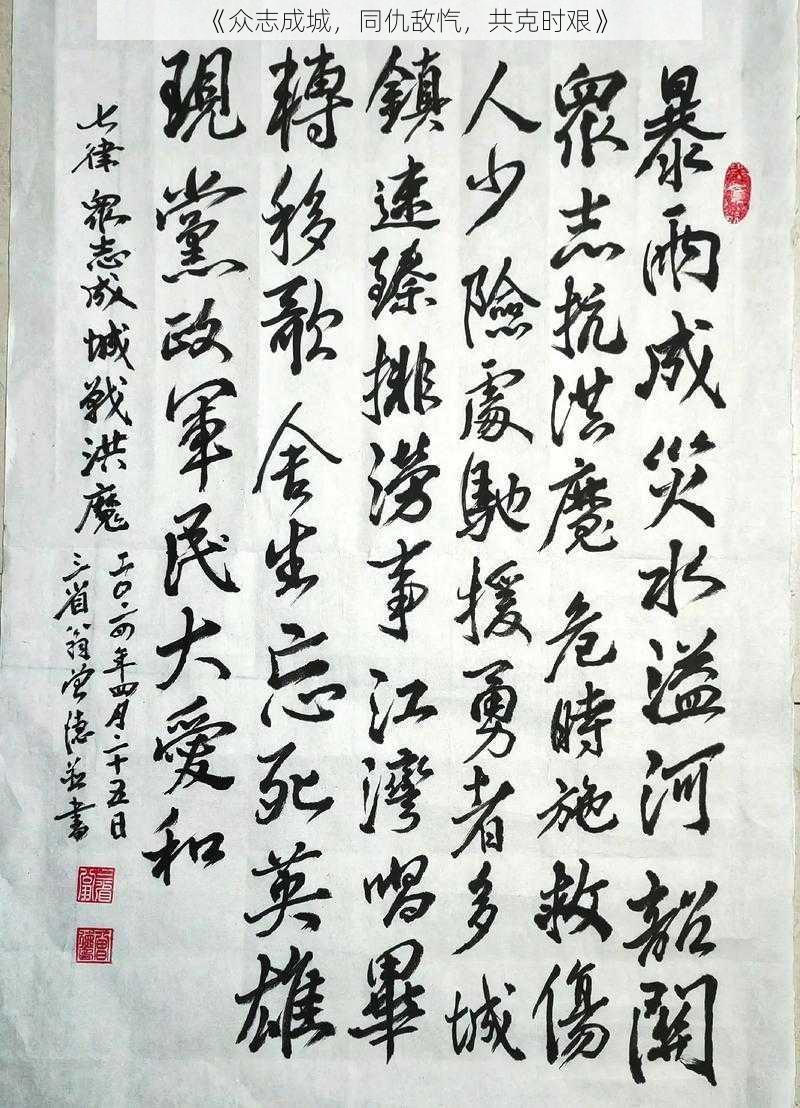 《众志成城，同仇敌忾，共克时艰》
暴雨成災水溢河韶關
眾志抗洪魔危時施救傷
人少險處馳援勇者多城
鎮速臻排澇事江灣唱畢
轉移歌舍生忘死英雄
現黨政軍民大愛和
七律眾志成城戰洪魔
二〇二四年四月二十五日
三省翁曾德並書